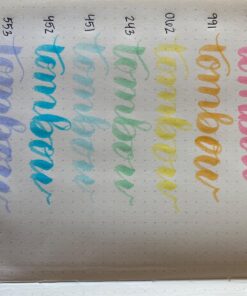 tombow
991 tombow
062 tombow
243 tombow
451 tombow
452 tombow
553 tombow